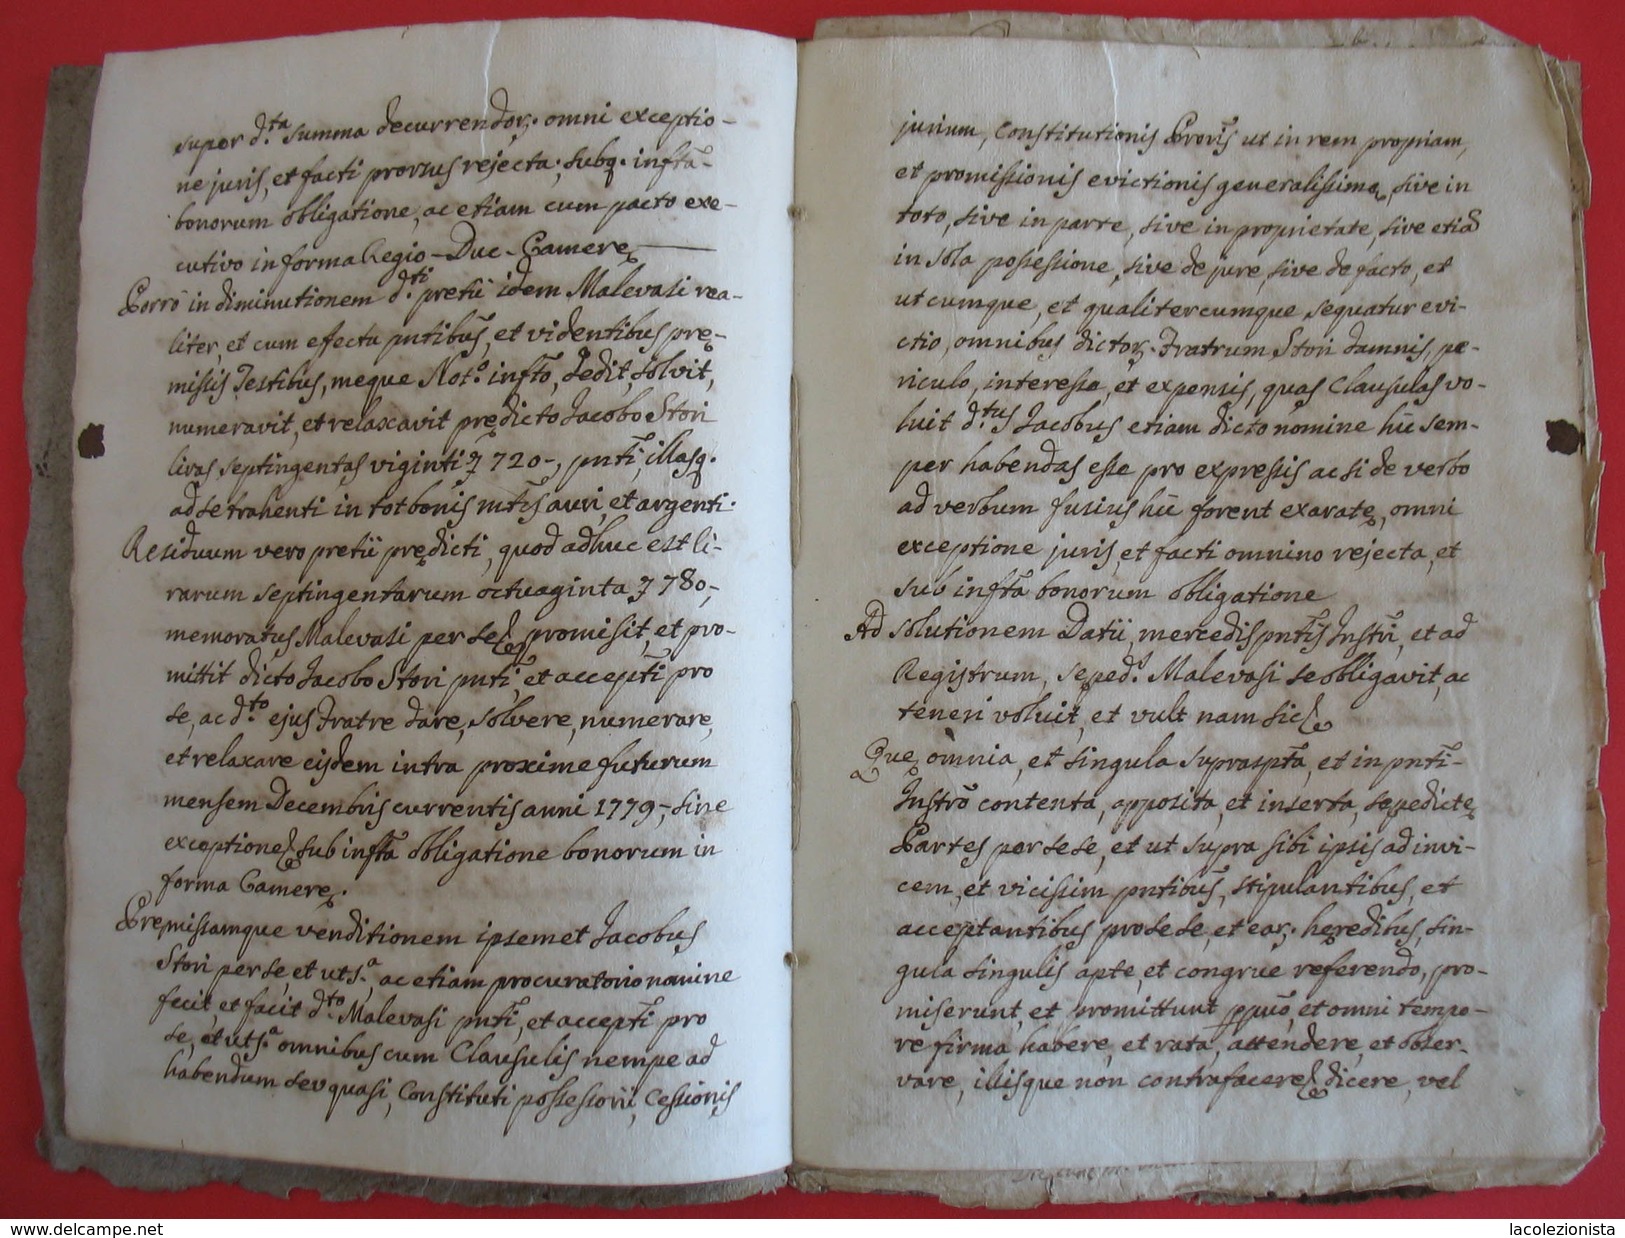 super d.ta summa decurrendor. omni exceptio-
ne juris, et facti prorsus rejecta; subq. infta-
bonorum obligatione, ac etiam cum pacto exe-
cutivo in forma Regio-Duc-Camere
Porrò in diminutionem d.ti pretii idem Malevasi rea-
liter, et cum efectu pntibus, et videntibus pre-
missis Testibus, meque Not.o infto, dedit, solvit,
numeravit, et relaxavit predicto Jacobo Stori
liras septingentas viginti 720-, pnti, illasq.
ad se trahenti in tot bonis mtis auri, et argenti.
Residuum vero pretii predicti, quod adhuc est li-
rarum septingentarum octuaginta 780-,
memoratus Malevasi per se promisit, et pro-
mittit dicto Jacobo Stori pnti, et accepti pro
se, ac d.to ejus Fratre dare, solvere, numerare,
et relaxare eisdem intra proxime futurum
mensem Decembris currentis anni 1779-, sine
exceptione sub infta obligatione bonorum in
forma Camere.
Premissamque venditionem ipsemet Jacobus
Stori per se, et uts.a, ac etiam procuratorio nomine
fecit, et facit d.to Malevasi pnti, et accepti pro
se, et uts.a omnibus cum Clausulis nempe ad
habendum seu quasi, Constituti possessorii, Cessionis
jurium, Constitutionis Proris ut in rem propriam,
et promissionis evictionis generalissime, sive in
toto, sive in parte, sive in proprietate, sive etiã
in sola possessione, sive de jure, sive de facto, et
utcumque, et qualitercumque sequatur evi-
ctio, omnibus dictor. Fratrum Stori damnis, pe-
riculo, interesse, et expensis, quas Clausulas vo-
luit d.tus Jacobus etiam dicto nomine hic sem-
per habendas esse pro expressis ac si de verbo
ad verbum fusius hic forent exarate, omni
exceptione juris, et facti omnino rejecta, et
sub infta bonorum obligatione
Ad solutionem Datii, mercedis pntis Instri, et ad
Registrum, seped.s Malevasi se obligavit, ac
teneri voluit, et vult nam sic
Que omnia, et singula supraspta, et in pnti-
Instro contenta, apposita, et inserta, sepedicte
Partes per se se, et ut supra sibi ipsis ad invi-
cem, et vicissim pntibus, stipulantibus, et
acceptantibus pro se se, et ear. heredibus, sin-
gula singulis apte, et congrue referendo, pro-
miserunt, et promittunt ppuò, et omni tempo-
re firma habere, et rata, attendere, et obser-
vare, illisque non contrafacere dicere, vel
www.delcampe.net
lacolezionista